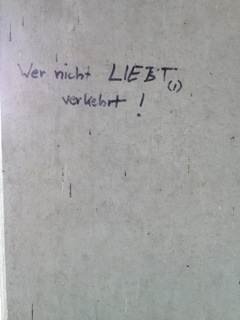 Wer nicht LIEBT
(,)
verkehrt !